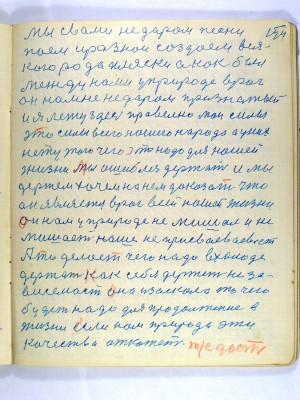 мы с вами не даром песни 124
поем и разной создаем вся-
кого рода пляски а как был
между нами у природе враг
он нам не недаром признатый
и я лежу здесь правелно мои силы
это силы всего нашего народа а у них
нету того чего это надо для нашей
жизни мы ошиблез держать и мы
держем хочем на нем доказать что
он является враг всей нашей жизни
он нам у природе не мишал и не
мишает наше не присваевает
А то делоет чего надо в входе
держат как себя держет неза-
висемаст она изаскала то чего
будет надо для продолжение в
жизни если нам природа эти
качества откажет.